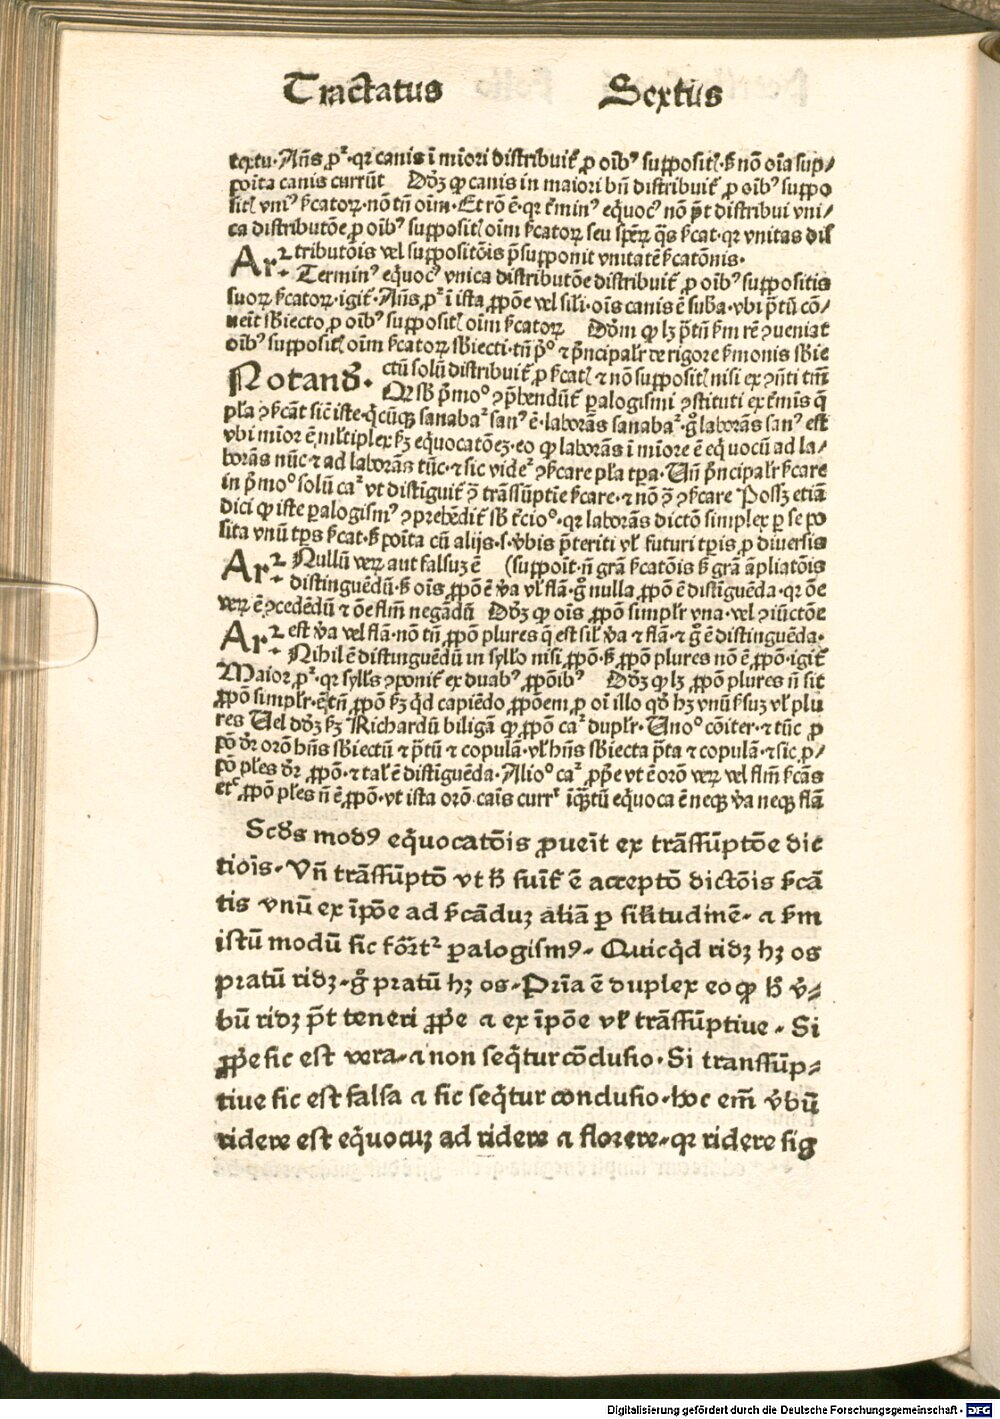 Tractatus Sextus
textu. Añs pꝫ. qꝛ canis ī mīori distribuit̄ ꝓ oībꝰ supposit(. s̄ nō oīa sup/
poīta canis currūt Dōꝫ ꝙ canis in maiori bñ distribuit̄ ꝓ oibꝰ suppo
sit( vniꝰ s̄catoꝝ. nō tñ oīm. Et rō ē. qꝛ t̄minꝰ eq̄uocꝰ nō p̄t distribui vni/
ca distributōe ꝓ oibꝰ supposit( oīm s̄catoꝝ seu sp̄eꝝ q̄s s̄cat. qꝛ vnitas dis
Ar.2 tributōis vel suppositōis p̄supponit vnitatē s̄catōnis.
Terminꝰ eq̄uocꝰ vnica distributōe distribuit̄ ꝓ oibꝰ suppositis
suoꝝ s̄catoꝝ. igit̄. Añs pꝫ ī ista ꝓpōe vel sili. oīs canis ē suba. vbi p̄tū cō/
ueit sbiecto ꝓ oibꝰ supposit( oīm s̄catoꝝ Dōm ꝙ lꝫ p̄tū s̄m rē ꝯueniat
oibꝰ supposit( oīm s̄catoꝝ sbiecti. tñ p̄º ⁊ p̄ncipalr̄ de rigore s̄monis sbie
Notand. ctū solū distribuit̄ ꝓ s̄cat( ⁊ nō supposit( nisi ex ꝯn̄ti tm̄
Qꝛ sb p̄moº ꝯp̄hendūt̄ ꝑalogismi ꝯstituti ex t̄mīs q̄
pl̄a ꝯs̄cāt sic iste. q̄cūqꝫ sanabaᷣ sanꝰ ē. laborās sanabaᷣ. gͦ laborās sanꝰ est
vbi mīor ē ml̄tiplex s̄ꝫ eq̄uocatōeꝫ. eo ꝙ laborās ī mīore ē eq̄uocū ad la/
borās nūc. ⁊ ad laborās tūc. ⁊ sic videᷣ ꝯs̄care pl̄a tꝑa. Uñ p̄ncipalr̄ s̄care
in p̄moº solū caᷣ vt distīguit̄ ꝯ trāssūptie s̄care. ⁊ nō ꝯ ꝯs̄care Possꝫ etiā
dici ꝙ iste ꝑalogismꝰ ꝯprehēdit̄ sb t̄cioº. qꝛ laborās dictō simplex ꝑ se po
sita vnū tꝑs s̄cat. s̄ poīta cū alijs. s. v̄bis p̄teriti vl̄ futuri tꝑis ꝓ diuersis
Ar.2 Nullū veꝝ aut falsuꝫ ē (suppoīt. ñ grā s̄catōis s̄ grā apliatōis
distinguēdū. s̄ oīs ꝓpō ē v̄a vl̄ flā. gͦ nulla ꝓpō ē distīguēda. qꝛ oē
veꝝ ē ꝯcedēdū ⁊ oē flm̄ negādū Dōꝫ ꝙ oīs ꝓpō simplr̄ vna. vel ꝯiūctōe
Ar.2 est v̄a vel flā. nō tñ ꝓpō plures q̄ est sil̄ v̄a ⁊ flā. ⁊ gͦ ē distinguēda.
Nihil ē distinguēdū in syllo nisi ꝓpō. s̄ ꝓpō plures nō ē ꝓpō. igit̄
Maior pꝫ. qꝛ sylls ꝯponit̄ ex duabꝰ ꝓpōibꝰ Dōꝫ ꝙ lꝫ ꝓpō plures ñ sit
ꝓpō simplr̄. ē tñ ꝓpō s̄ꝫ q̄d capiēdo ꝓpōem ꝓ oī illo qd̄ hꝫ vnū s̄suꝫ vl̄ plu
res Uel dōꝫ s̄ꝫ Richardū biligā ꝙ ꝓpō caᷣ duplr̄. Unoº cōiter. ⁊ tūc ꝓ
pō dr̄ orō hñs sbiectū ⁊ p̄tū ⁊ copulā. vl̄ hñs sbiecta p̄ta ⁊ copulā. ⁊ sic ꝓ/
pō ples dr̄ ꝓpō. ⁊ tal̄ ē distīguēda. Alioº caᷣ ꝓpe vt ē orō veꝝ vel flm̄ s̄cās
etc̄ ꝓpō ples ñ ē ꝓpō. vt ista orō canis currᷣ īqꝫtū eq̄uoca ē neqꝫ v̄a neqꝫ flā
Scds modꝰ eq̄uocatōis ꝓueīt ex trāssūptōe dic
tiois. Uñ trāssūptō vt h̄ suīt̄ ē acceptō dictōis s̄cā
tis vnū ex īpōe ad s̄cāduꝫ aliā ꝑ sil̄itudinē. ⁊ s̄m
istū modū sic fōrt2 ꝑalogismꝰ. Quicq̄d ridꝫ hꝫ os
pratū ridꝫ. gͦ pratū hꝫ os. Prīa ē duplex eo ꝙ h̄ v̄/
bū ridꝫ p̄t teneri ꝓpe ⁊ ex īpōe vl̄ trāssūptiue. Si
ꝓpe sic est vera. ⁊ non seq̄tur cōclusio. Si transsūp/
tiue sic est falsa ⁊ sic seq̄tur conclusio. hoc em̄ v̄bū
ridere est eq̄uocuꝫ ad ridere ⁊ florere. qꝛ ridere sig
Digitalisierung gefördert durch die Deutsche Forschungsgemeinschaft - DFG